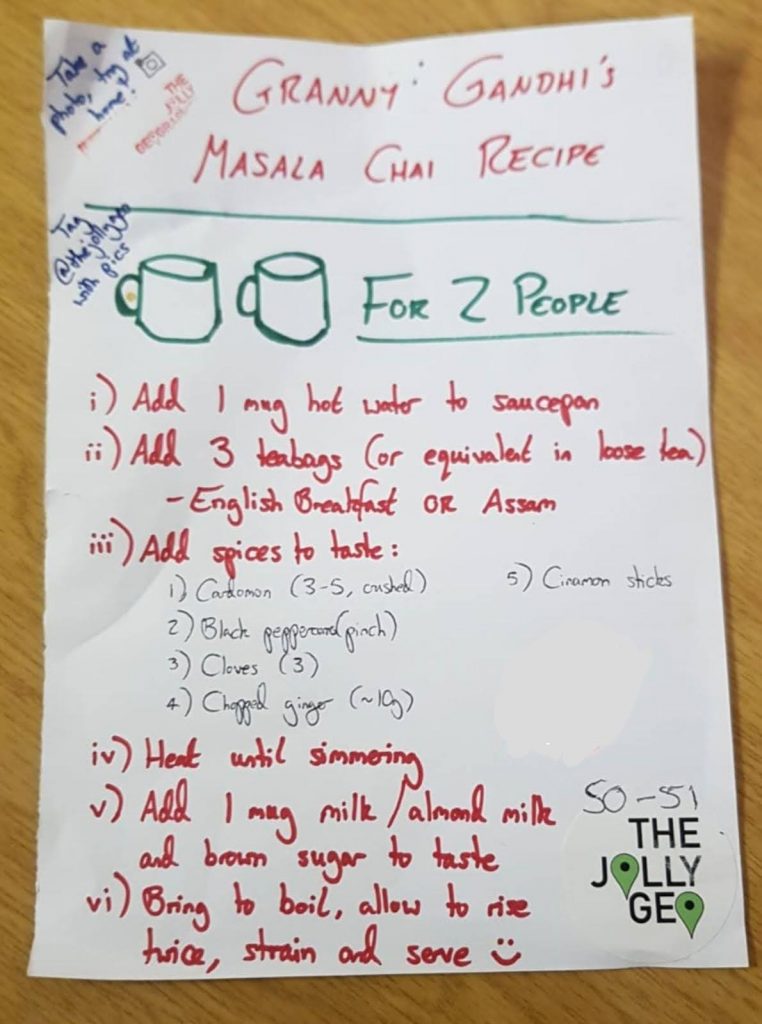 Take a
photo, try at
home!
THE
JOLLY
GRANNY GANDHI'S
MASALA CHAI RECIPE
Tag
@thejollygeo
with pics
FOR 2 PEOPLE
i) Add 1 mug hot water to saucepan
ii) Add 3 teabags (or equivalent in loose tea)
- English Breakfast OR Assam
iii) Add spices to taste:
1) Cardomon (3-5, crushed)
2) Black peppercorn (pinch)
3) Cloves (3)
4) Chopped ginger (~10g)
5) Cinamon sticks
iv) Heat until simmering
v) Add 1 mug milk / almond milk
and brown sugar to taste
vi) Bring to boil, allow to rise
twice, strain and serve
50-51
THE
JOLLY
GEO